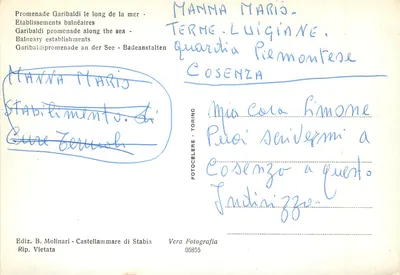 Promenade Garibaldi le long de la mer -
Etablissements balnéaires
Garibaldi promenade along the sea -
Balneary establishments
Garibaldipromenade an der See - Badeanstalten
MANNA MARIO
Stabilimento di
Cure Termali
MANNA MARIO-
TERME-LUIGIANE-
guardia Piemontese
COSENZA
Mia Cara Simone
Puoi scrivermi a
Cosenzo a questo
Indirizzo.
FOTOCELERE - TORINO
Ediz. B. Molinari - Castellammare di Stabia
Rip. Vietata
Vera Fotografia
05855